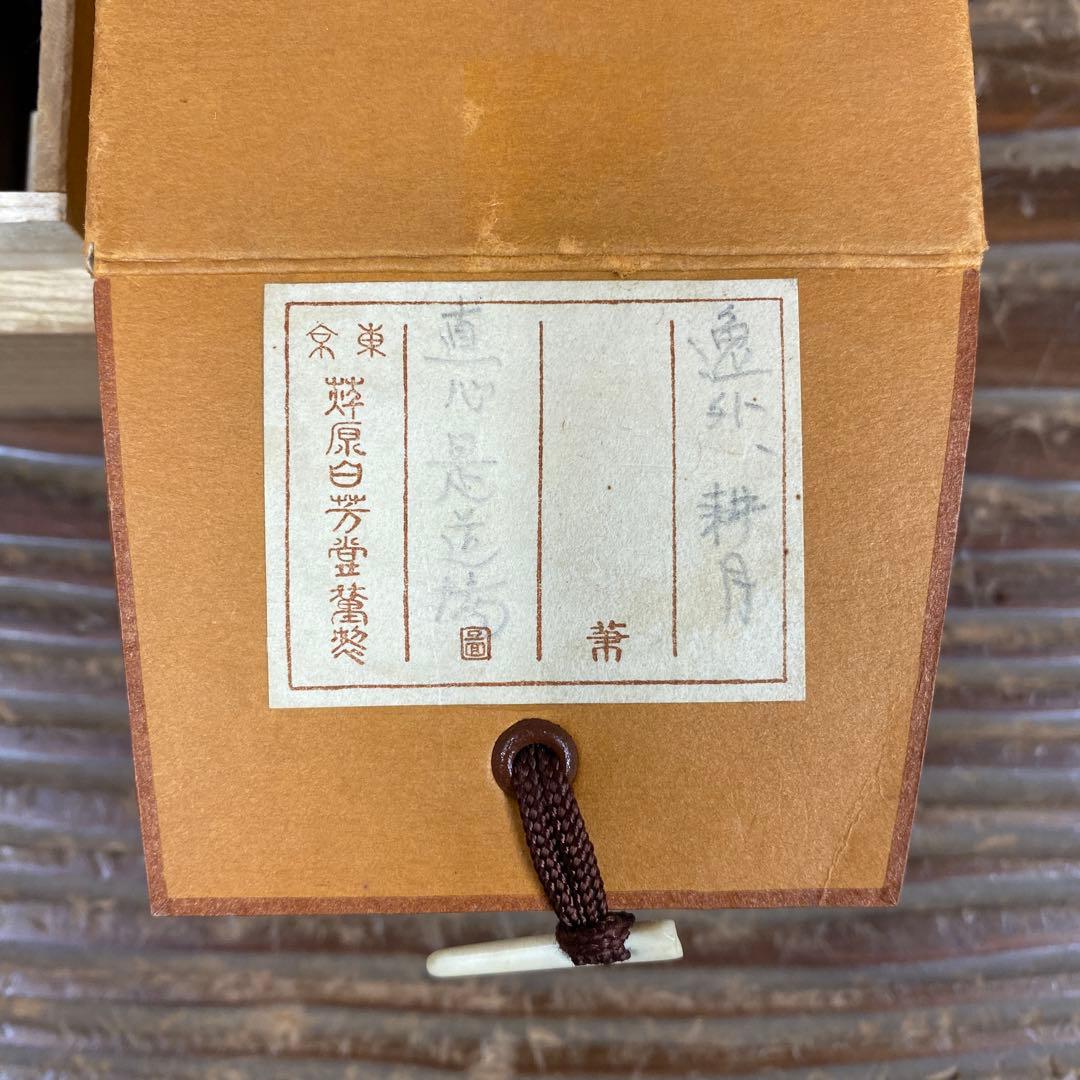 逸外、耕月
筆
直心是道場圖
東京
原白芳堂